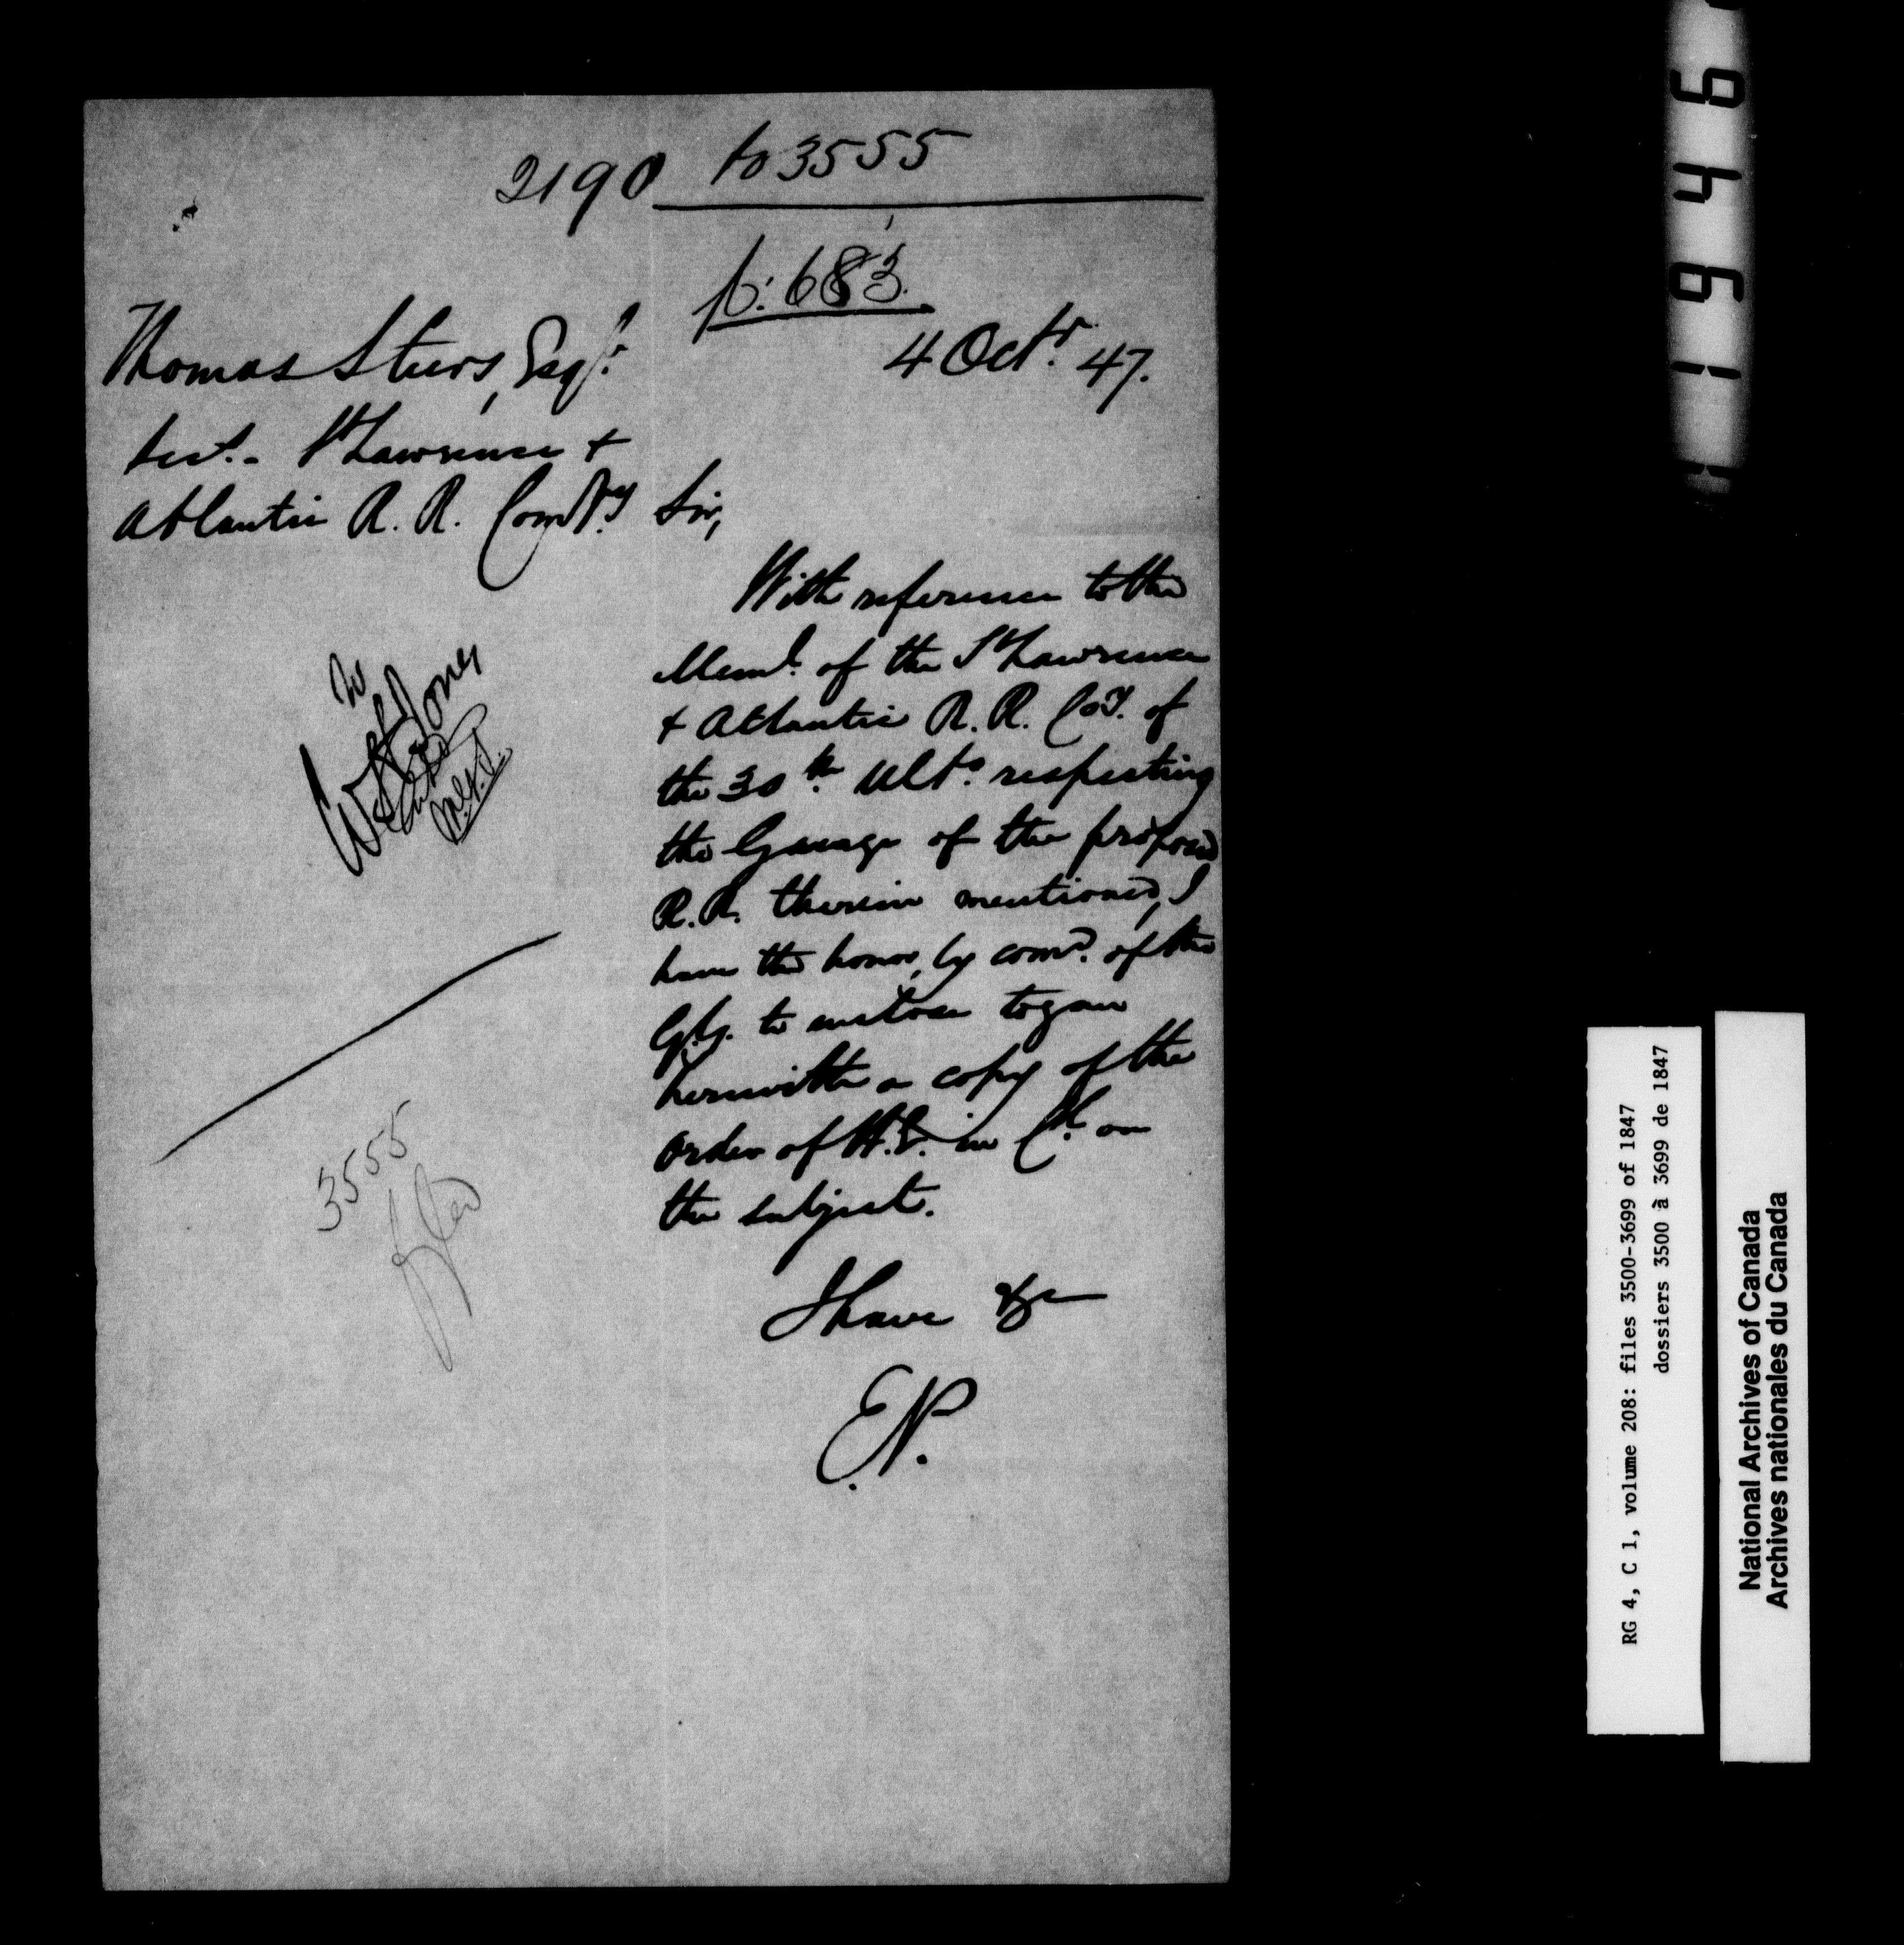 2190 to 3555
p: 683.
4 Octr. 47.
Thomas Steers, Esqr.
Sect. St Lawrence +
Atlantic R. R. Compy
Sir,
With reference to the
Meml. of the St Lawrence
+ Atlantic R. R. Coy. of
the 30th. Ulto. respecting
the Gauage of the proposed
R.R. therein mentioned, I
have the honor, by comd. of the
G.G. to enclose to you
herewith a copy of the
order of H.E. in Cl. on
the subject.
I have &c
E.P.
to
Jones
3555
RG 4, C 1, volume 208: files 3500-3699 of 1847
dossiers 3500 à 3699 de 1847
National Archives of Canada
Archives nationales du Canada
1946